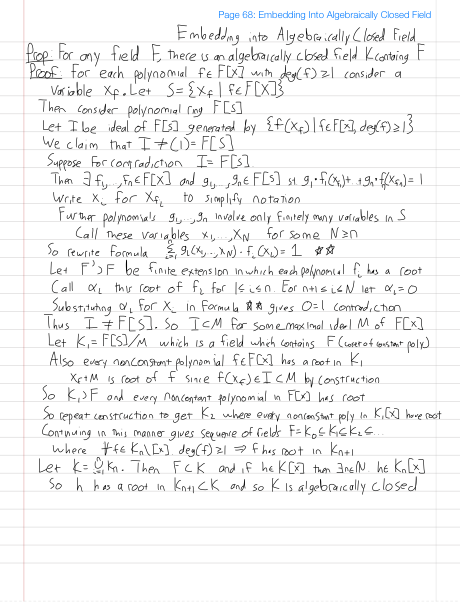 Page 68: Embedding Into Algebraically Closed Field
Embedding into Algebraically Closed Field
Prop: For any field F, there is an algebraically closed field K containing F
Proof: For each polynomial f∈F[x] with deg(f)≥1 consider a
variable x_f. Let S={x_f | f∈F[X]}
Then consider polynomial ring F[S]
Let I be ideal of F[S] generated by {f(x_f) | f∈F[x], deg(f)≥1}
We claim that I≠(1)=F[S]
Suppose for contradiction I=F[S].
Then ∃f₁,...,fₙ∈F[x] and g₁,...,gₙ∈F[S] st g₁·f₁(x_f₁)+...+gₙ·f(x_fₙ)=1
Write x_i for x_f_i to simplify notation
Further polynomials g₁,...,gₙ involve only finitely many variables in S
Call these variables x₁,...,x_N for some N≥n
So rewrite formula Σ_{i=1}^n g_i(x₁,...,x_N)·f_i(x_i)=1 ☆☆
Let F'⊃F be finite extension in which each polynomial f_i has a root
Call α_i this root of f_i for 1≤i≤n. For n+1≤i≤N let α_i=0
Substituting α_i for x_i in formula ☆☆ gives 0=1 contradiction
Thus I≠F[S]. So I⊂M for some maximal ideal M of F[x]
Let K₁=F[S]/M which is a field which contains F (coset of constant poly)
Also every nonconstant polynomial f∈F[x] has a root in K₁
x_f+M is root of f since f(x_f)∈I⊂M by construction
So K₁⊃F and every nonconstant polynomial in F[x] has root
So repeat construction to get K₂ where every nonconstant poly in K₁[x] have root
Continuing in this manner gives sequence of fields F=K₀⊆K₁⊆K₂⊆...
where ∀f∈Kₙ[x], deg(f)≥1 ⇒ f has root in Kₙ₊₁
Let K=∪_0^∞ Kₙ. Then F⊂K and if h∈K[x] then ∃n∈N. h∈Kₙ[x]
So h has a root in Kₙ₊₁⊂K and so K is algebraically closed